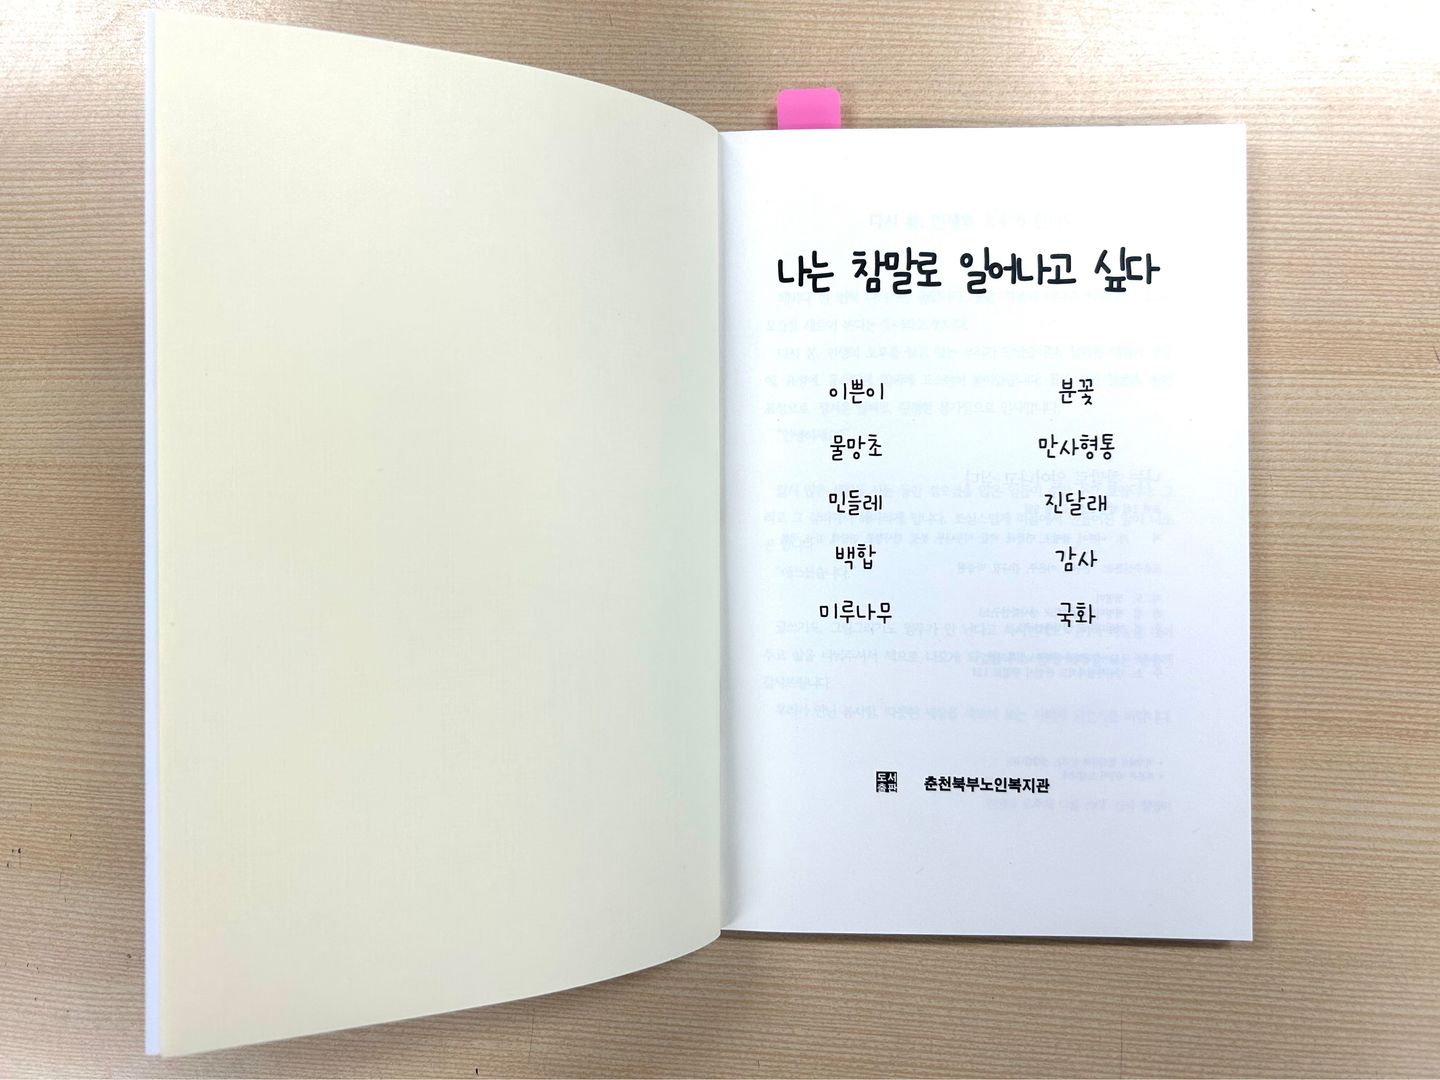 나는 참말로 일어나고 싶다
이쁜이 분꽃
물망초 만사형통
민들레 진달래
백합 감사
미루나무 국화
도서출판 춘천북부노인복지관